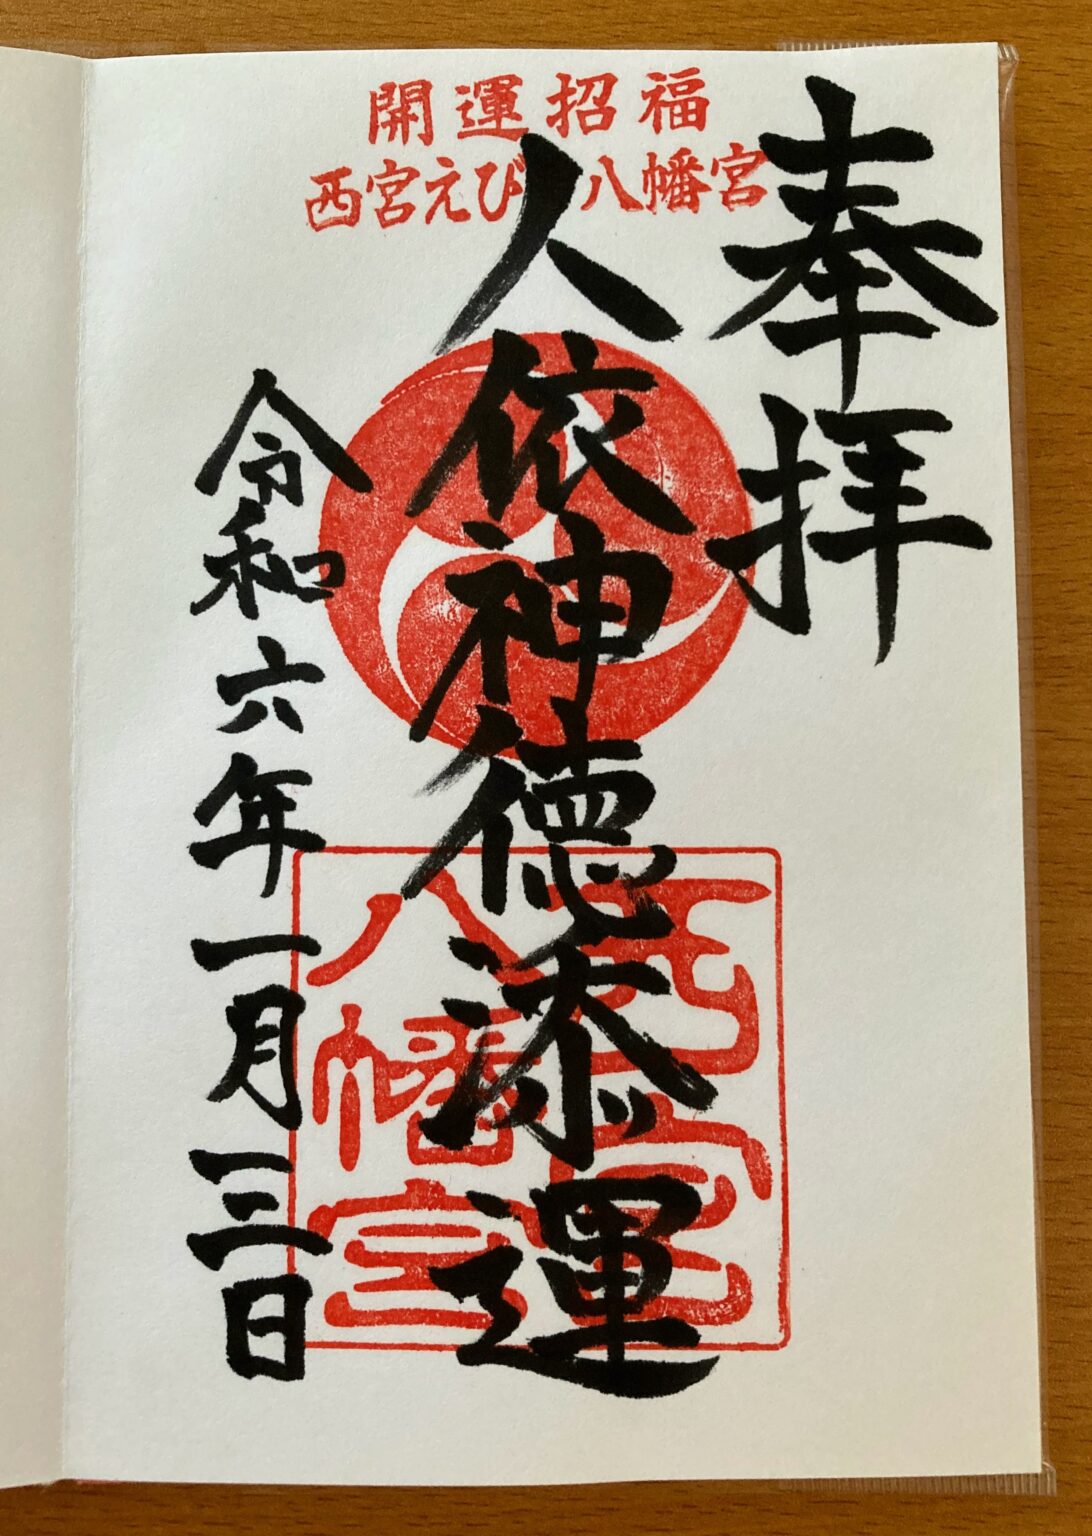 開運招福
西宮えび 八幡宮
奉拝
人依神徳添運
令和六年一月三日
西宮
八幡宮